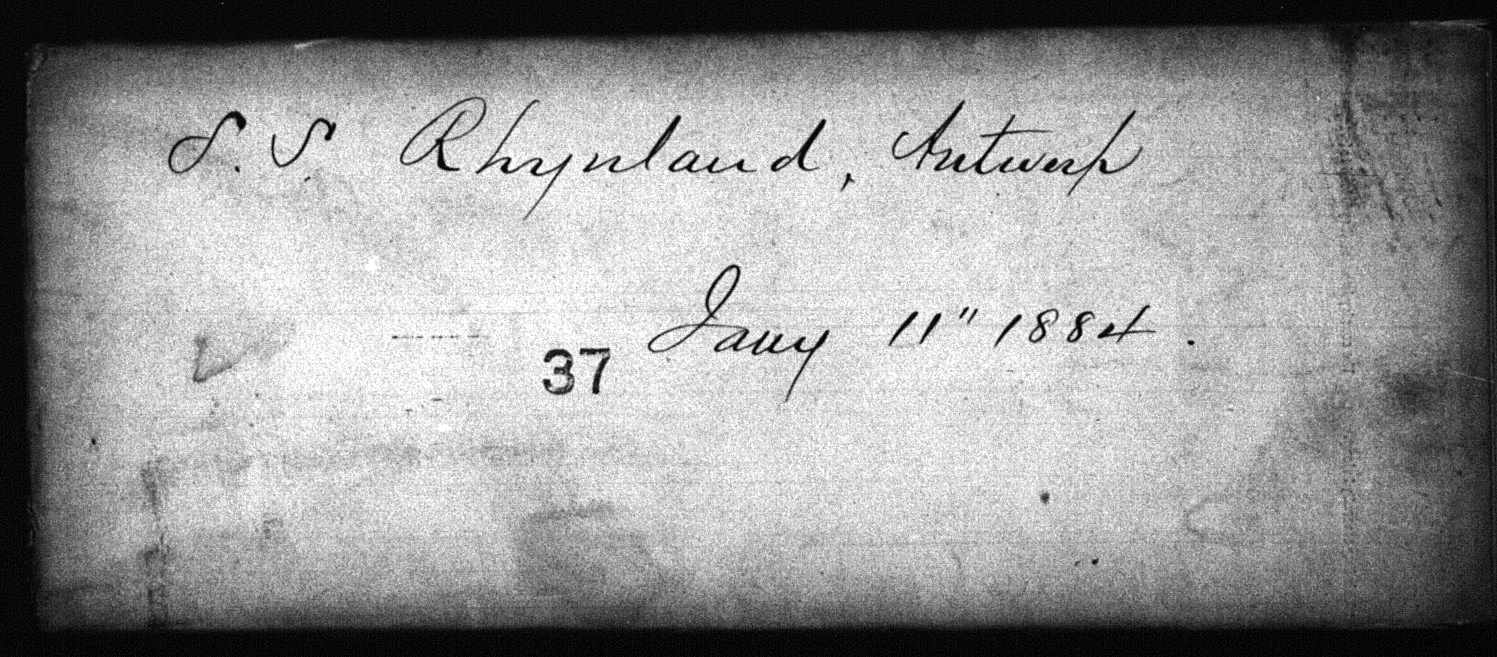 S.S. Rhynland, Antwerp
Jany 11" 1884.
37